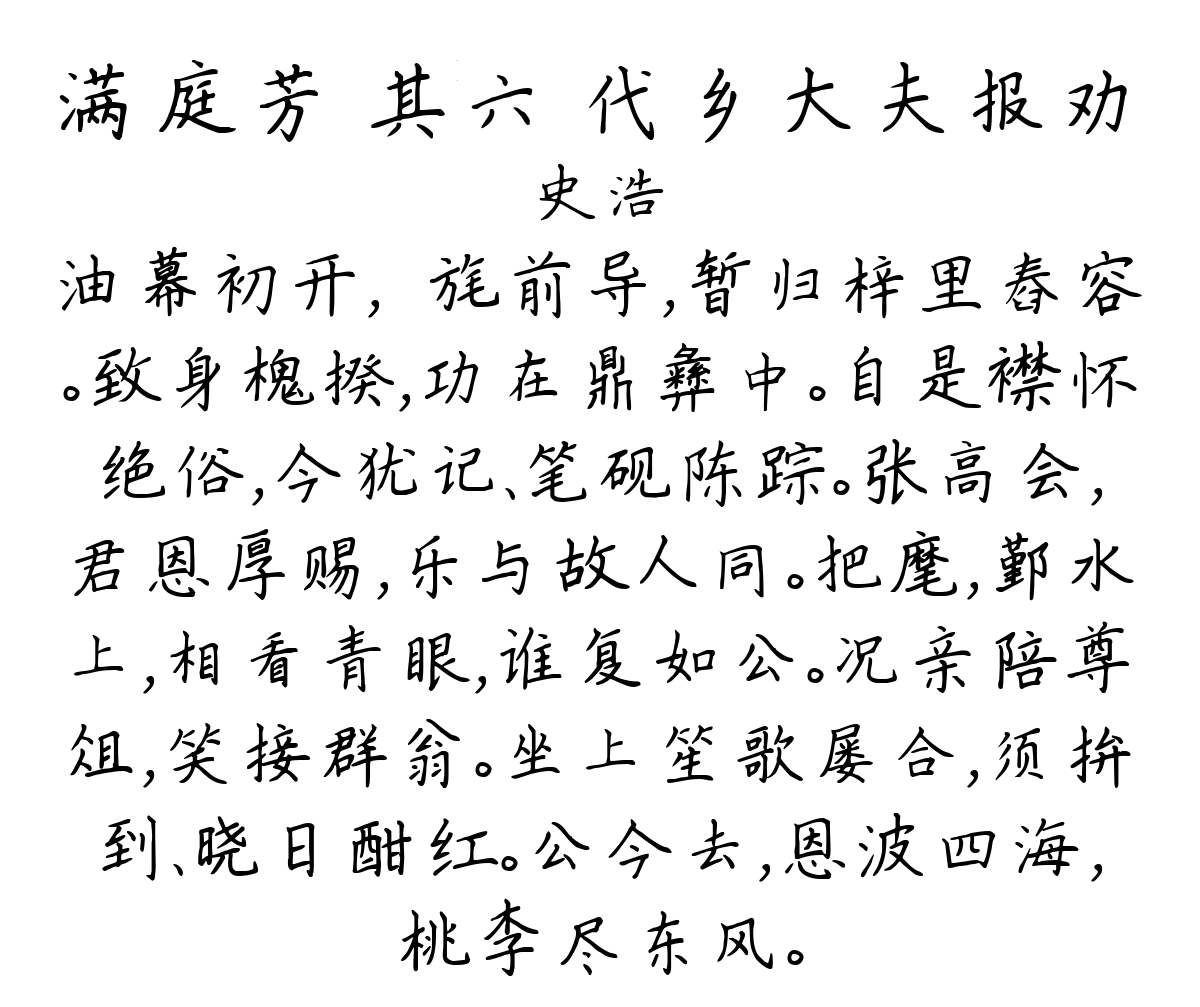 满庭芳 其六 代乡大夫报劝
史浩
油幕初开，旄前导，暂归梓里舂容
。致身槐揆，功在鼎彝中。自是襟怀
绝俗，今犹记、笔砚陈踪。张高会，
君恩厚赐，乐与故人同。把麾，鄞水
上，相看青眼，谁复如公。况亲陪尊
俎，笑接群翁。坐上笙歌屡合，须拚
到、晓日酣红。公今去，恩波四海，
桃李尽东风。